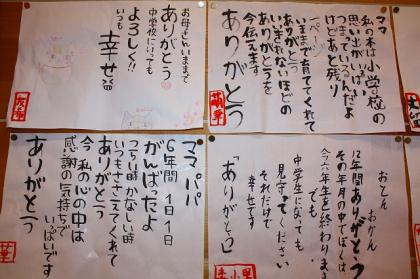 ママ
私の本は小学校の
思い出がいっぱい
つまっているんだよ
けどあと残り
一ページ
いままで育ててくれて
ありがとう
いままでにないほどの
ありがとうを
今伝えます
ありがとう
お母さんいままで
ありがとう
中学校にいっても
よろしく!!
いつも
幸せ
おとん おかん
12年間ありがとう
その年月の中でぼくは
今六年生を終わりよる
でも
中学生になっても
見守ってください
それだけで
幸せです
「ありがとう」
ママ パパ
6年間 1日1日
がんばったよ
つらい時かなしい時
いつもささえてくれて
ありがとう
今 私の心の中は
感謝の気持ちで
いっぱいです
ありがとう